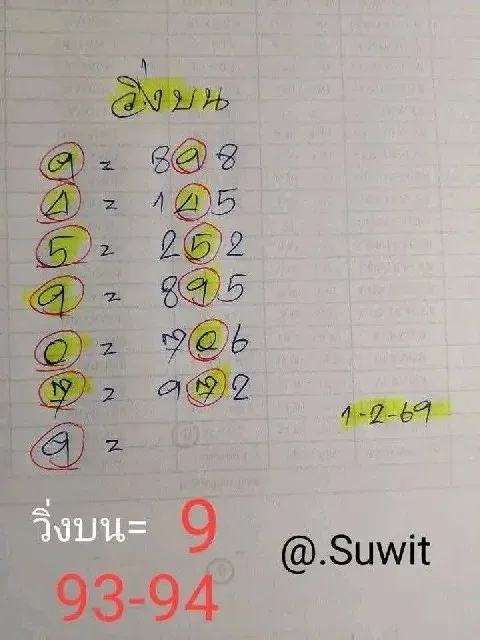 วิ่งบน
9 = 898
4 = 145
5 = 252
9 = 895
0 = 706
7 = 972
9 =
1-2-69
วิ่งบน= 9
@.Suwit
93-94